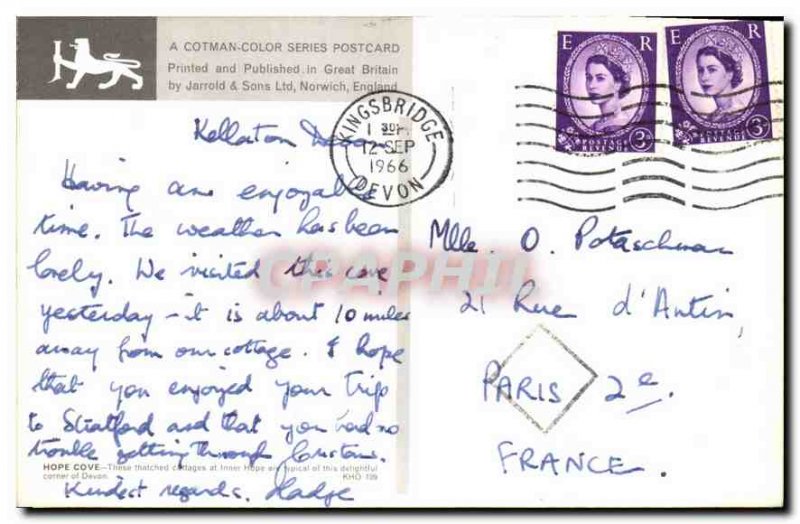 A COTMAN-COLOR SERIES POSTCARD
Printed and Published in Great Britain
by Jarrold & Sons Ltd, Norwich, England
E R
POSTAGE REVENUE 3D
E R
POSTAGE REVENUE 3D
KINGSBRIDGE
12 SEP
1966
DEVON
Kellaton Devon
Having an enjoyable
time. The weather has been
lovely. We visited this cove
yesterday - it is about 10 miles
away from our cottage. I hope
that you enjoyed your trip
to Stratford and that you had no
trouble getting through Customs.
Kindest regards. Madge
HOPE COVE—These thatched cottages at Inner Hope are typical of this delightful
corner of Devon.
KHO 199
Mlle. O. Potaschman
21 Rue d'Antin,
PARIS 2e.
FRANCE.
CPAPHIL